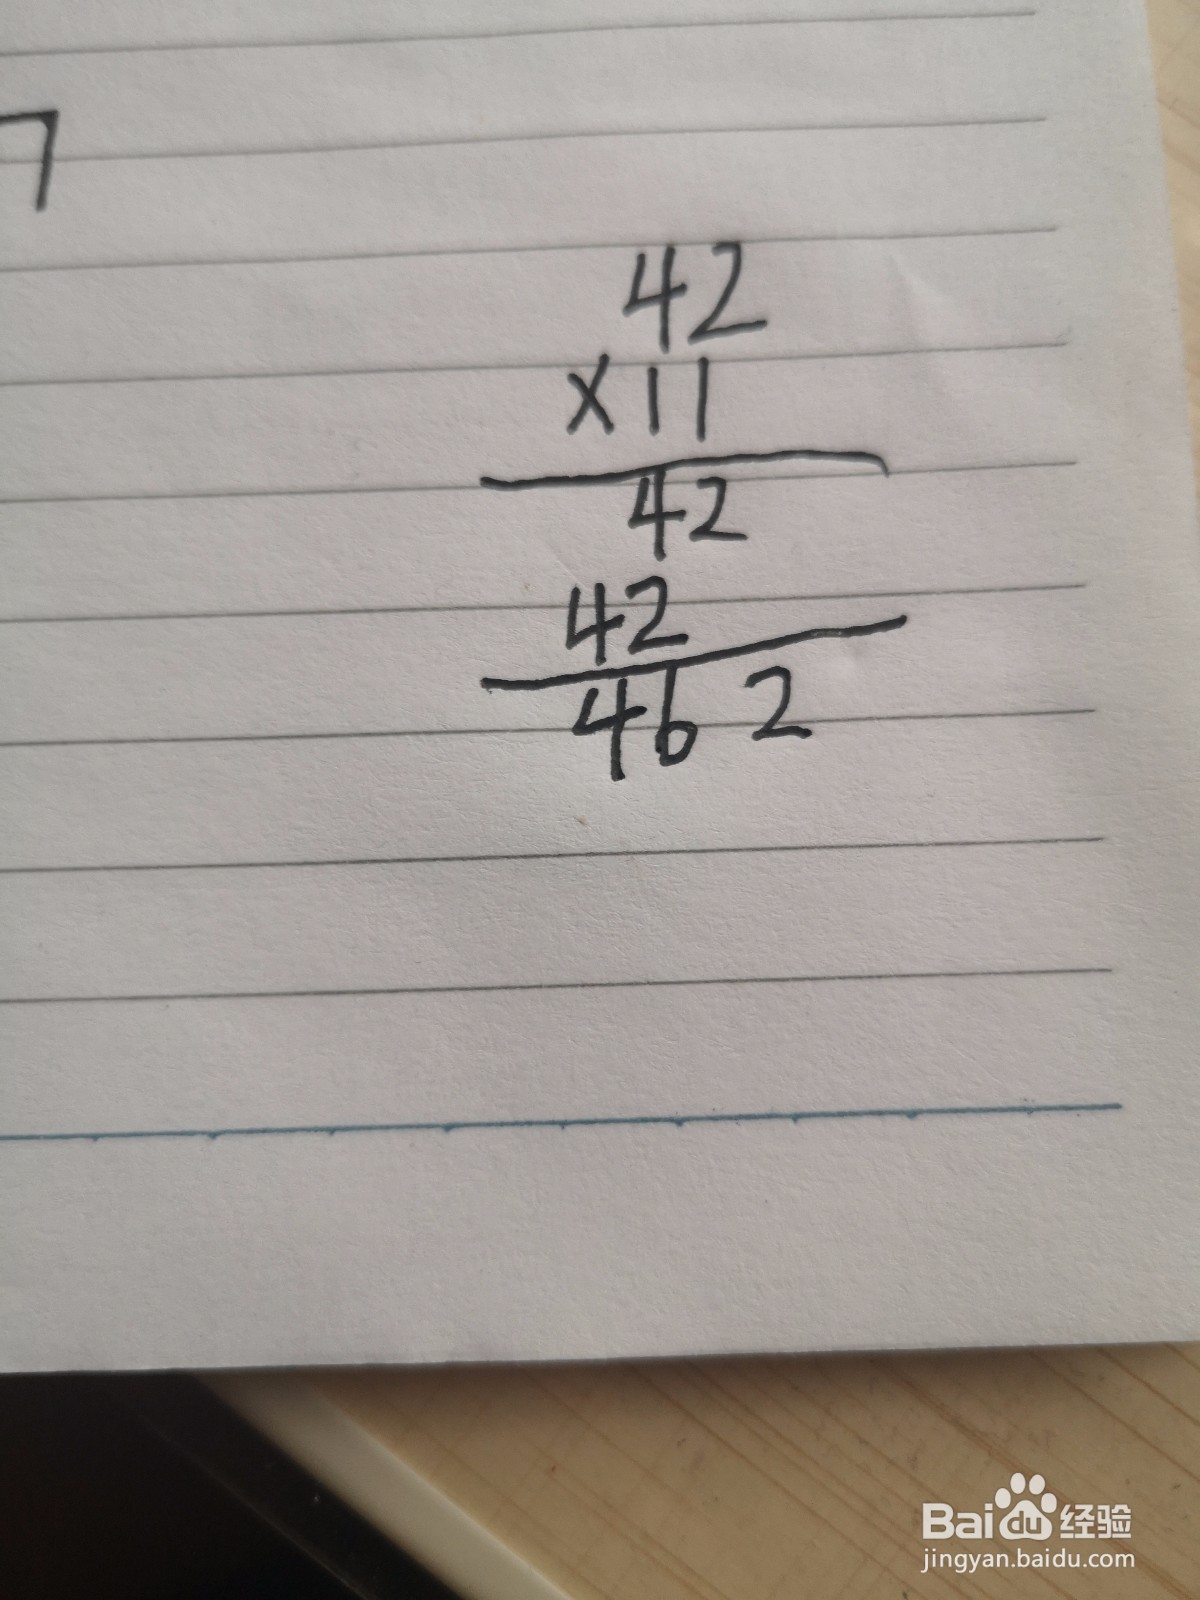 7
42
×11
42
42
462
Bai du 经验
jingyan.baidu.com